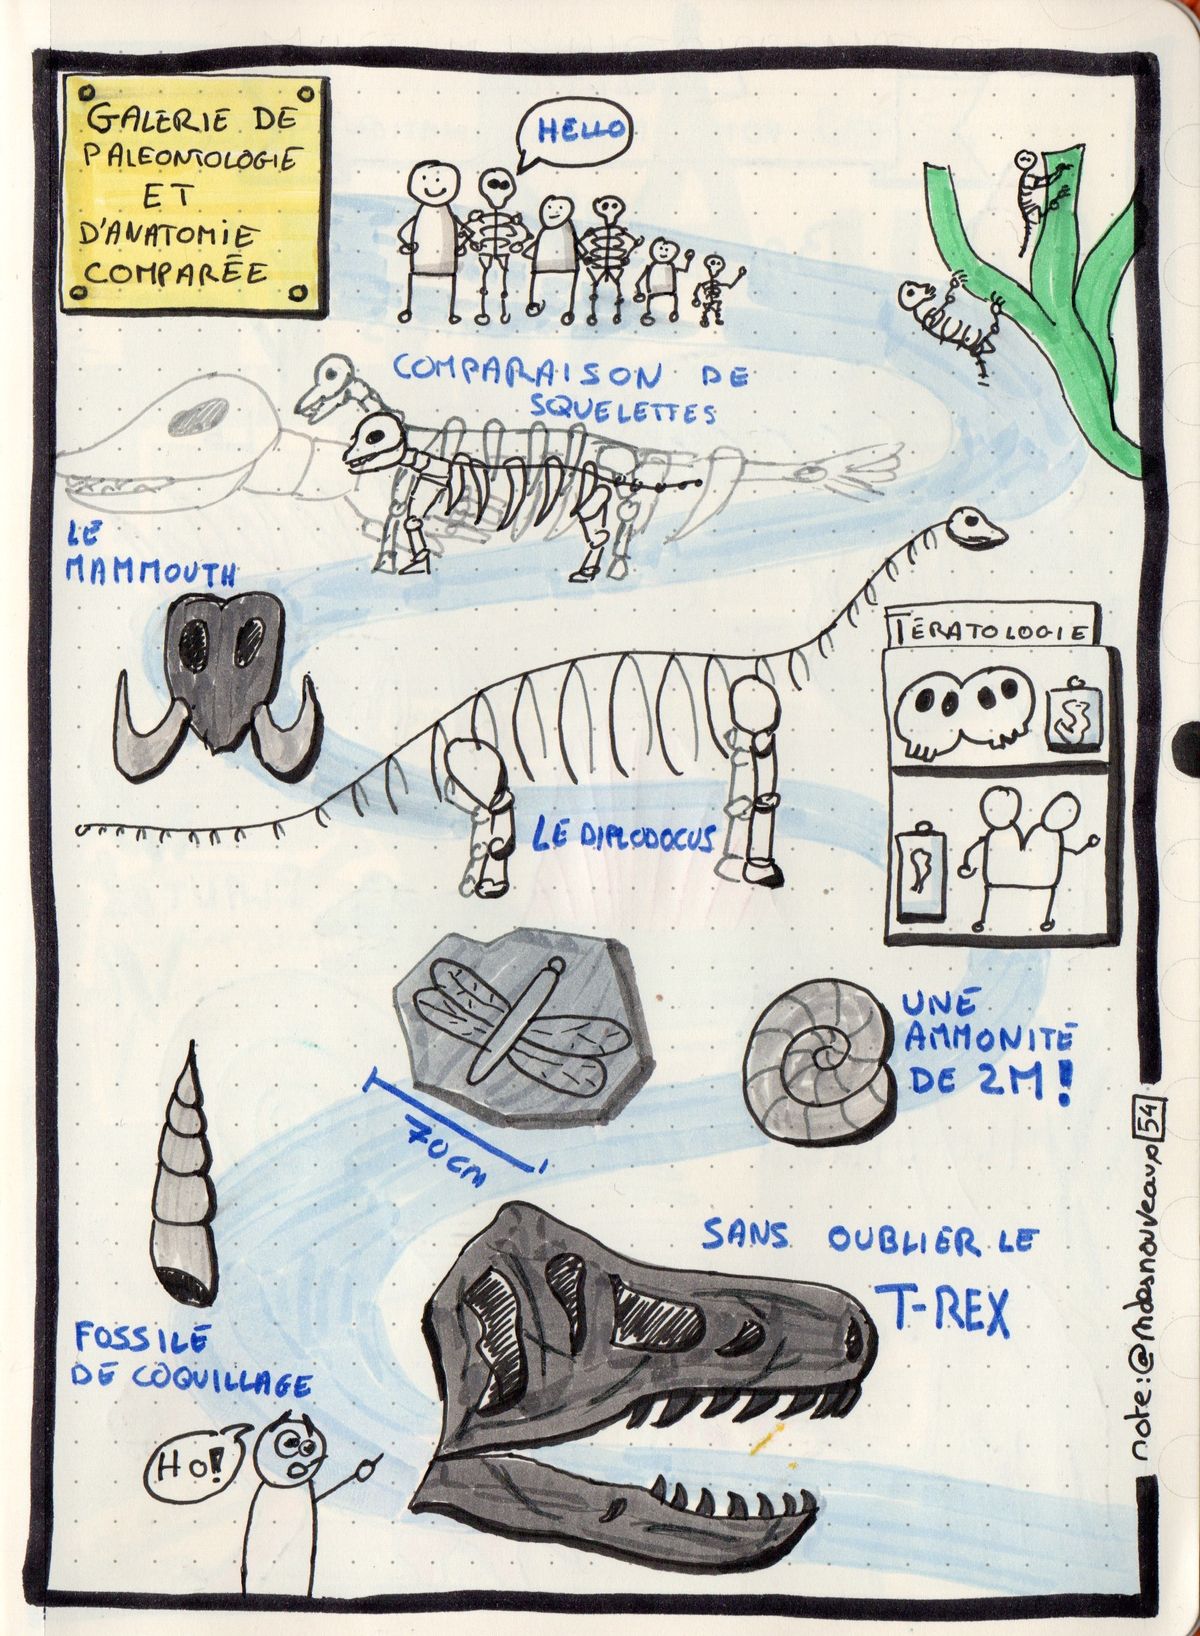 GALERIE DE
PALEONTOLOGIE
ET
D'ANATOMIE
COMPARÉE
HELLO
COMPARAISON DE
SQUELETTES
LE
MAMMOUTH
TÉRATOLOGIE
LE DIPLODOCUS
UNE
AMMONITE
DE 2M!
70 CM
SANS OUBLIER LE
T-REX
FOSSILE
DE COQUILLAGE
HO!
note:@mdesnouveaux 54